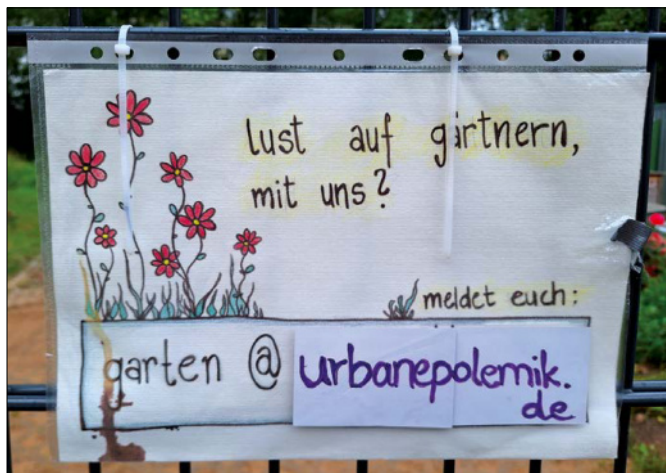 lust auf gärtnern,
mit uns?
meldet euch:
garten @ urbanepolemik.
de